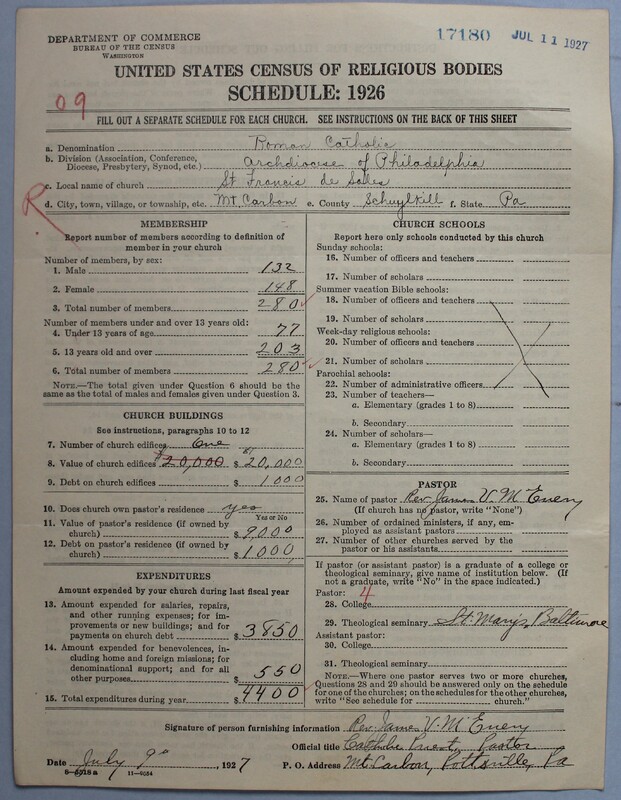 DEPARTMENT OF COMMERCE
BUREAU OF THE CENSUS
WASHINGTON
17180 JUL 11 1927
UNITED STATES CENSUS OF RELIGIOUS BODIES
SCHEDULE: 1926
09
FILL OUT A SEPARATE SCHEDULE FOR EACH CHURCH. SEE INSTRUCTIONS ON THE BACK OF THIS SHEET
a. Denomination Roman Catholic
b. Division (Association, Conference, Diocese, Presbytery, Synod, etc.) Archdiocese of Philadelphia
c. Local name of church St Francis de Sales
R
d. City, town, village, or township, etc. Mt Carbon e. County Schuylkill f. State Pa
MEMBERSHIP
Report number of members according to definition of
member in your church
Number of members, by sex:
1. Male 132
2. Female 148
3. Total number of members 280
Number of members under and over 13 years old:
4. Under 13 years of age 77
5. 13 years old and over 203
6. Total number of members 280
NOTE.—The total given under Question 6 should be
same as the total of males and females given under Question 3.
CHURCH BUILDINGS
See instructions, paragraphs 10 to 12
7. Number of church edifices One
8. Value of church edifices $20,000 $ 20,000
9. Debt on church edifices $ 1000
10. Does church own pastor's residence yes
Yes or No
11. Value of pastor's residence (if owned by
church) $ 9,000
12. Debt on pastor's residence (if owned by
church) $ 1,000
EXPENDITURES
Amount expended by your church during last fiscal year
13. Amount expended for salaries, repairs,
and other running expenses; for im-
provements or new buildings; and for
payments on church debt $ 3850
14. Amount expended for benevolences, in-
cluding home and foreign missions; for
denominational support; and for all
other purposes $ 550
15. Total expenditures during year $ 4400
CHURCH SCHOOLS
Report here only schools conducted by this church
Sunday schools:
16. Number of officers and teachers
17. Number of scholars
Summer vacation Bible schools:
18. Number of officers and teachers
19. Number of scholars
Week-day religious schools:
20. Number of officers and teachers
21. Number of scholars
Parochial schools:
22. Number of administrative officers
23. Number of teachers—
a. Elementary (grades 1 to 8)
b. Secondary
24. Number of scholars—
a. Elementary (grades 1 to 8)
b. Secondary
PASTOR
25. Name of pastor Rev. James V. McEnery
(If church has no pastor, write "None")
26. Number of ordained ministers, if any, em-
ployed as assistant pastors
27. Number of other churches served by the
pastor or his assistants
If pastor (or assistant pastor) is a graduate of a college or
theological seminary, give name of institution below. (If
not a graduate, write "No" in the space indicated.)
Pastor: 4
28. College
29. Theological seminary St. Mary's, Baltimore
Assistant pastor:
30. College
31. Theological seminary
NOTE.—Where one pastor serves two or more churches,
Questions 28 and 29 should be answered only on the schedule
for one of the churches; on the schedules for the other churches,
write "See schedule for church."
Signature of person furnishing information Rev. James V. McEnery
Official title Catholic Priest, Pastor
Date July 9º, 1927 P. O. Address Mt. Carbon, Pottsville, Pa
11—9054